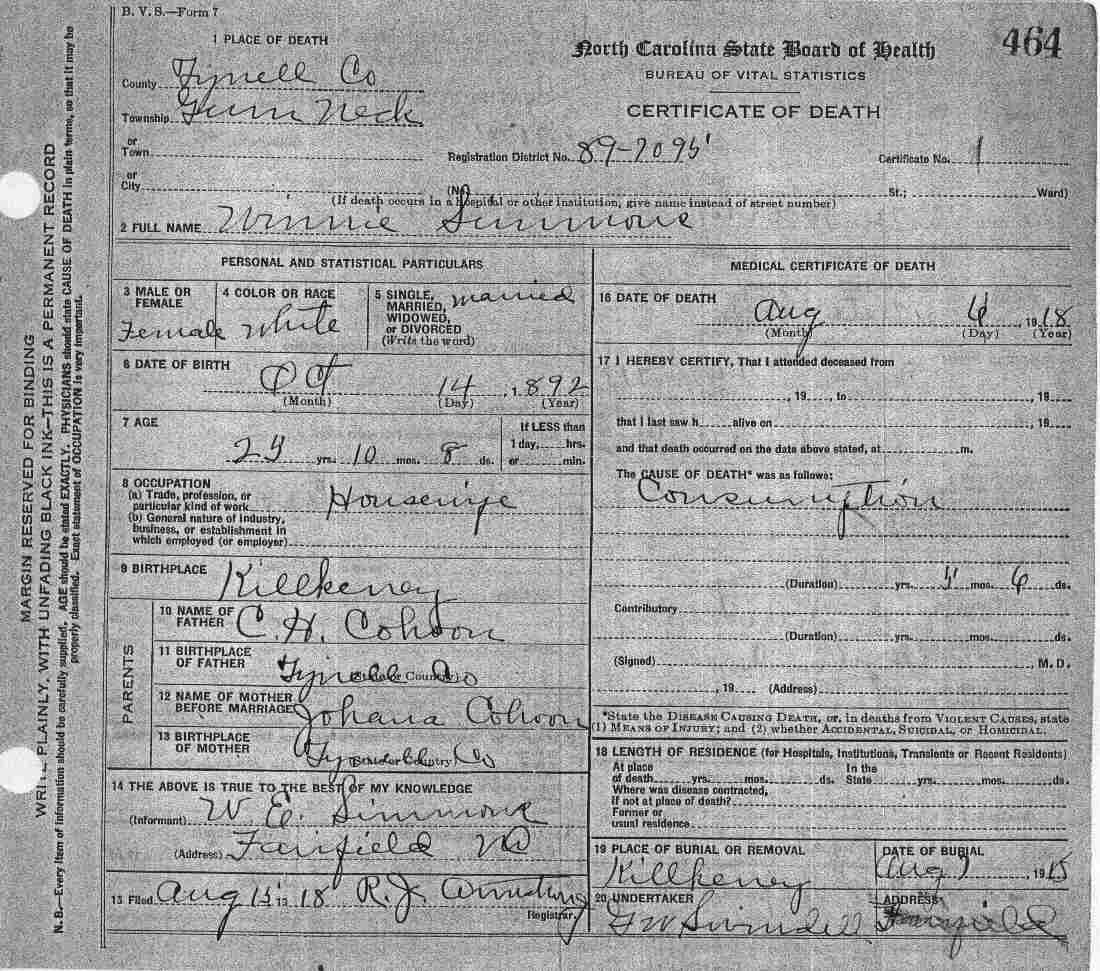 B. V. S.—Form 7
464
North Carolina State Board of Health
BUREAU OF VITAL STATISTICS
CERTIFICATE OF DEATH
1 PLACE OF DEATH
County Tyrrell Co
Township Gum Neck
or
Town
Registration District No. 89-7095
Certificate No. 1
or
City (No. St.; Ward)
(If death occurs in a hospital or other institution, give name instead of street number)
2 FULL NAME Winnie Simmons
PERSONAL AND STATISTICAL PARTICULARS
3 MALE OR FEMALE Female
4 COLOR OR RACE White
5 SINGLE, MARRIED, WIDOWED, or DIVORCED (Write the word) married
6 DATE OF BIRTH Oct 14, 1892
(Month) (Day) (Year)
7 AGE
25 yrs. 10 mos. 8 ds.
If LESS than
1 day, hrs.
or min.
8 OCCUPATION
(a) Trade, profession, or
particular kind of work Housewife
(b) General nature of industry,
business, or establishment in
which employed (or employer)
9 BIRTHPLACE Killkeney
PARENTS
10 NAME OF FATHER C. H. Cohoon
11 BIRTHPLACE OF FATHER (State or Country) Tyrrell Co
12 NAME OF MOTHER BEFORE MARRIAGE Johana Cohoon
13 BIRTHPLACE OF MOTHER (State or Country) Ty Co
14 THE ABOVE IS TRUE TO THE BEST OF MY KNOWLEDGE
(Informant) W. E. Simmons
(Address) Fairfield NC
15 Filed Aug 15 1918 R. J. Armstrong
Registrar.
MEDICAL CERTIFICATE OF DEATH
16 DATE OF DEATH
Aug 6, 1918
(Month) (Day) (Year)
17 I HEREBY CERTIFY, That I attended deceased from
, 19 , to , 19
that I last saw h alive on , 19
and that death occurred on the date above stated, at m.
The CAUSE OF DEATH* was as follows:
Consumption
(Duration) yrs. 5 mos. 6 ds.
Contributory
(Duration) yrs. mos. ds.
(Signed) , M. D.
, 19 (Address)
*State the DISEASE CAUSING DEATH, or, in deaths from VIOLENT CAUSES, state
(1) MEANS OF INJURY; and (2) whether ACCIDENTAL, SUICIDAL, or HOMICIDAL.
18 LENGTH OF RESIDENCE (for Hospitals, Institutions, Transients or Recent Residents)
At place of death yrs. mos. ds. In the State yrs. mos. ds.
Where was disease contracted,
If not at place of death?
Former or
usual residence
19 PLACE OF BURIAL OR REMOVAL
Killkeney
DATE OF BURIAL
Aug 7 1918
20 UNDERTAKER
G W Swindell
ADDRESS
Fairfield
MARGIN RESERVED FOR BINDING
WRITE PLAINLY, WITH UNFADING BLACK INK—THIS IS A PERMANENT RECORD
N. B.—Every item of information should be carefully supplied. AGE should be stated EXACTLY. PHYSICIANS should state CAUSE OF DEATH in plain terms, so that it may be
properly classified. Exact statement of OCCUPATION is very important.